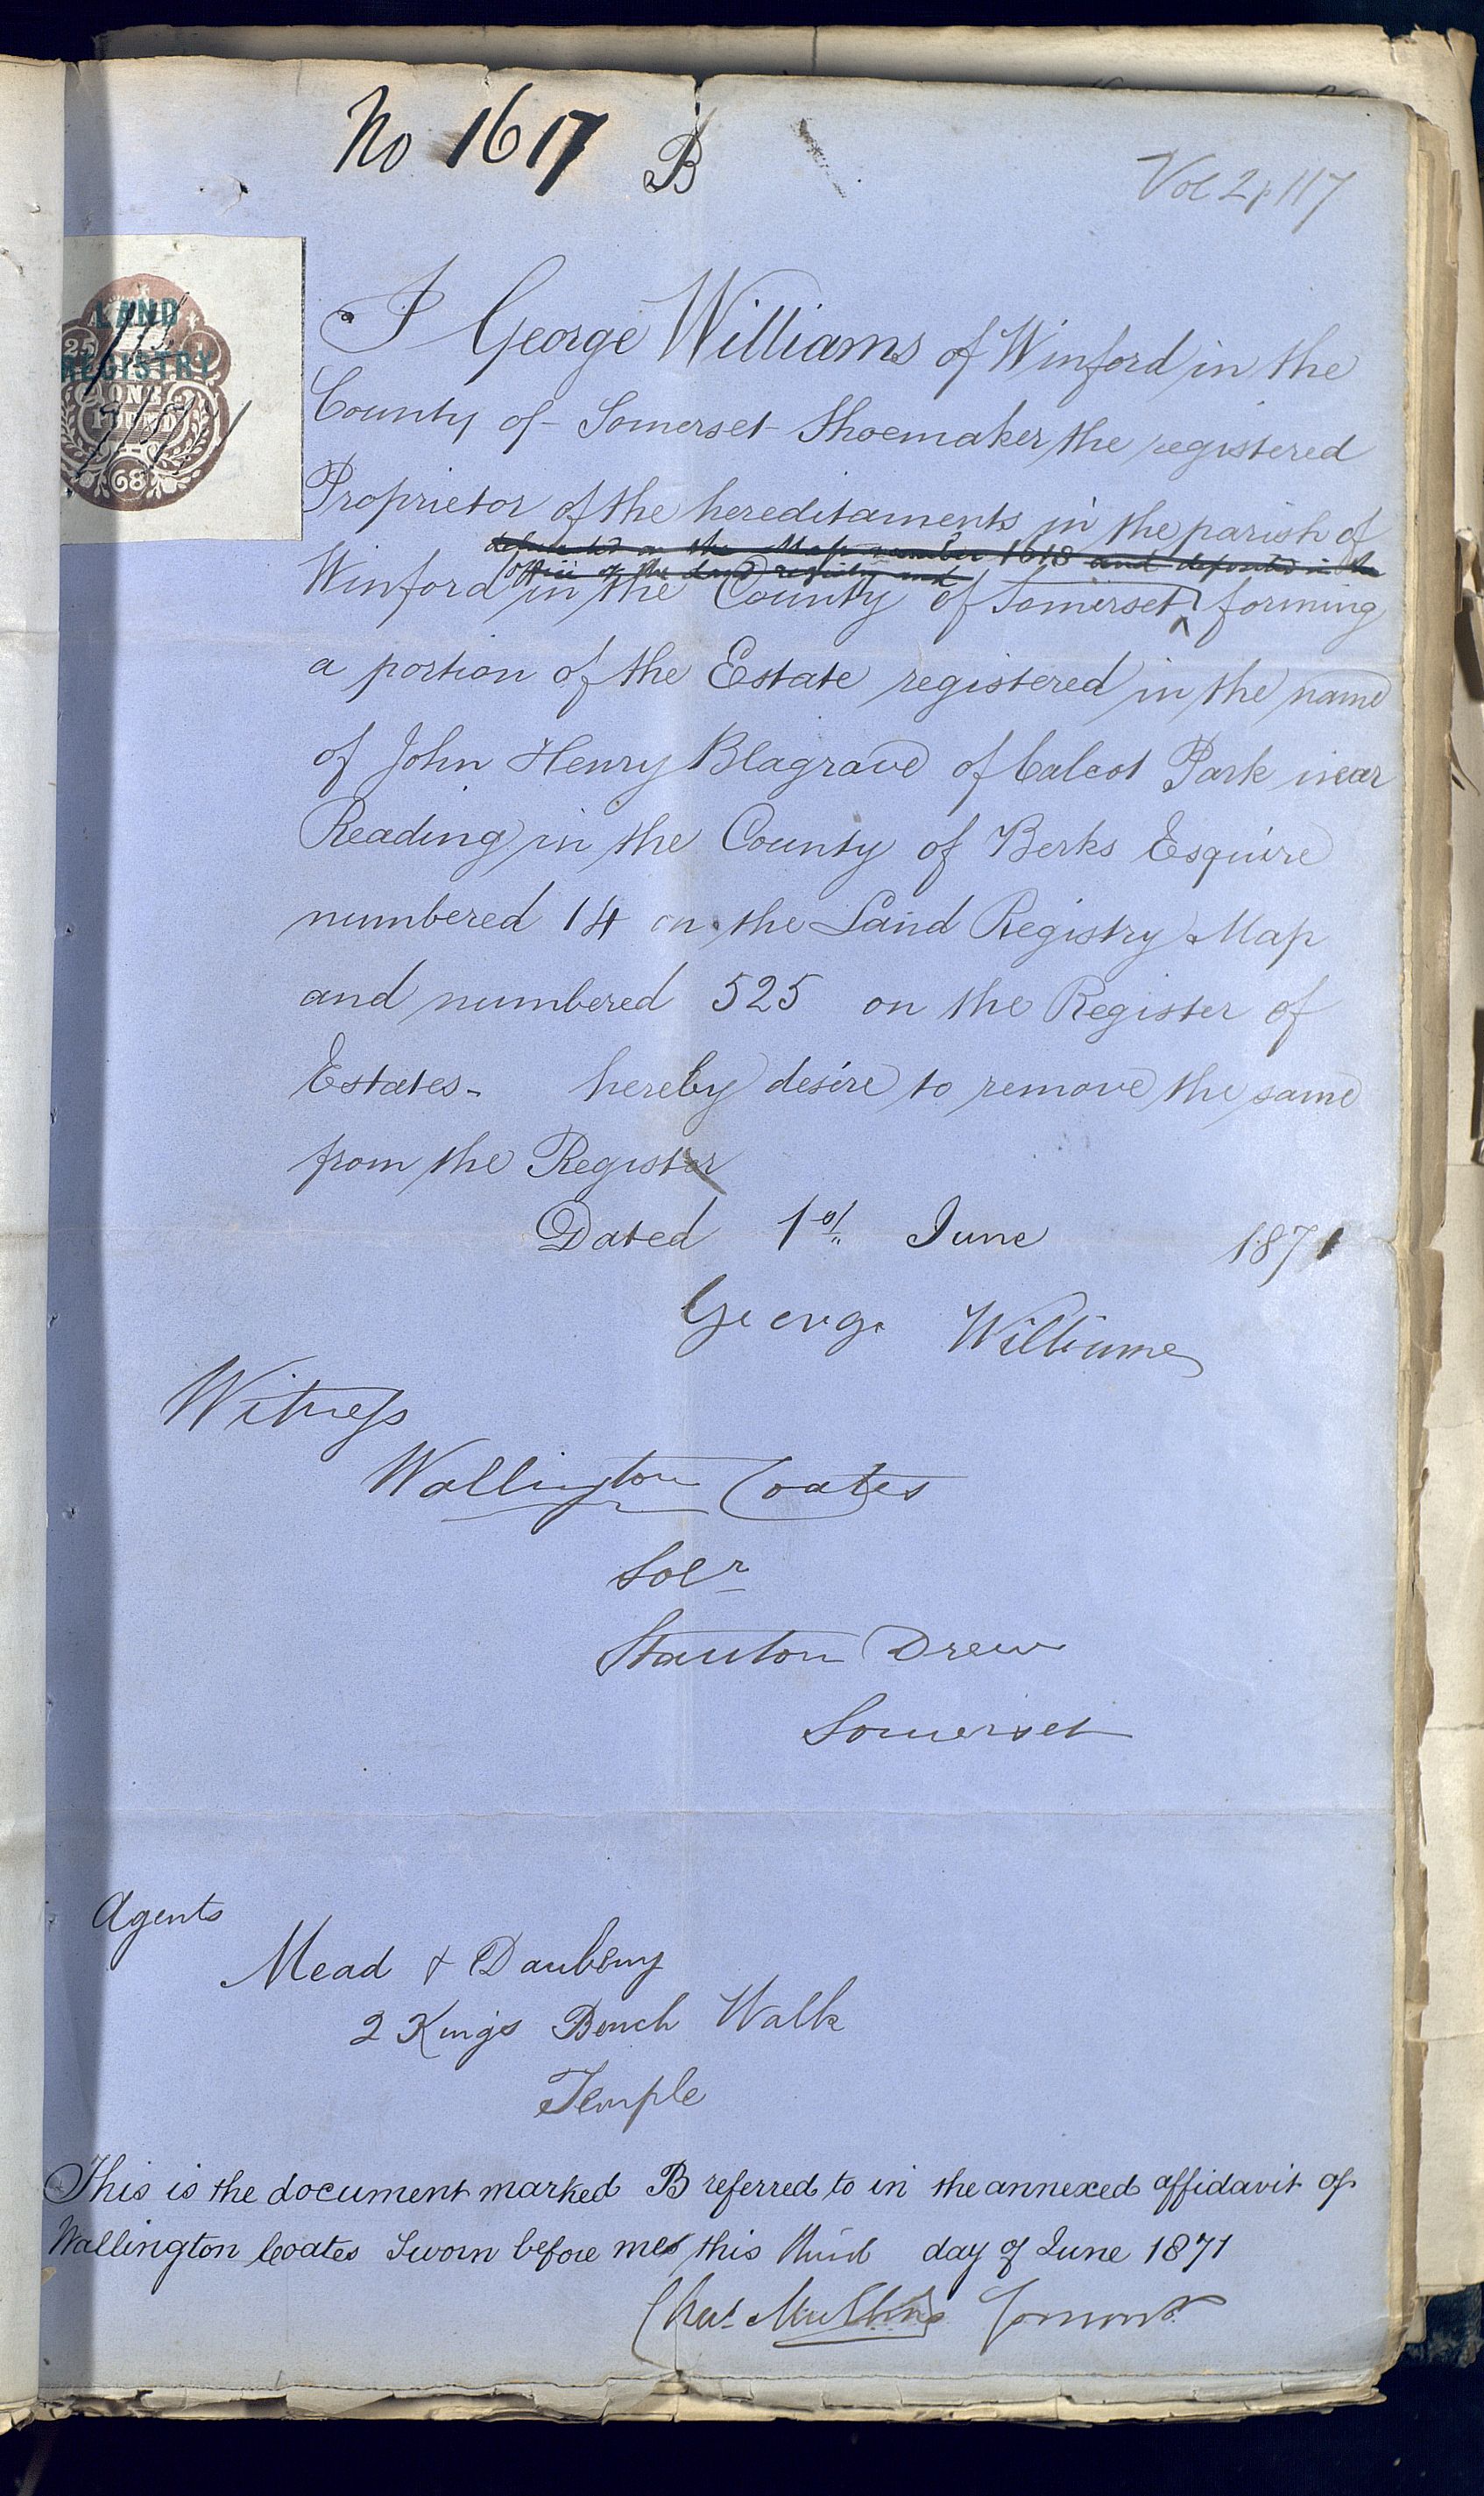 No 1617 B
Vol 2 p 117
LAND
REGISTRY
25
ONE
POUND
68
I George Williams of Winford in the
County of Somerset Shoemaker the registered
Proprietor of the hereditaments in the parish of
delineated on the Map number 1618 and deposited in the
Office of the Land registry and
Winford in the County of Somerset forming
a portion of the Estate registered in the name
of John Henry Blagrave of Calcot Park near
Reading in the County of Berks Esquire
numbered 14 on the Land Registry Map
and numbered 525 on the Register of
Estates - hereby desire to remove the same
from the Register
Dated 1st June 1871
George Williams
Witness
Wallington Coates
Solr
Stanton Drew
Somerset
Agents
Mead & Daubeny
2 Kings Bench Walk
Temple
This is the document marked B referred to in the annexed affidavit of
Wallington Coates Sworn before me this third day of June 1871
Chas. Mullins